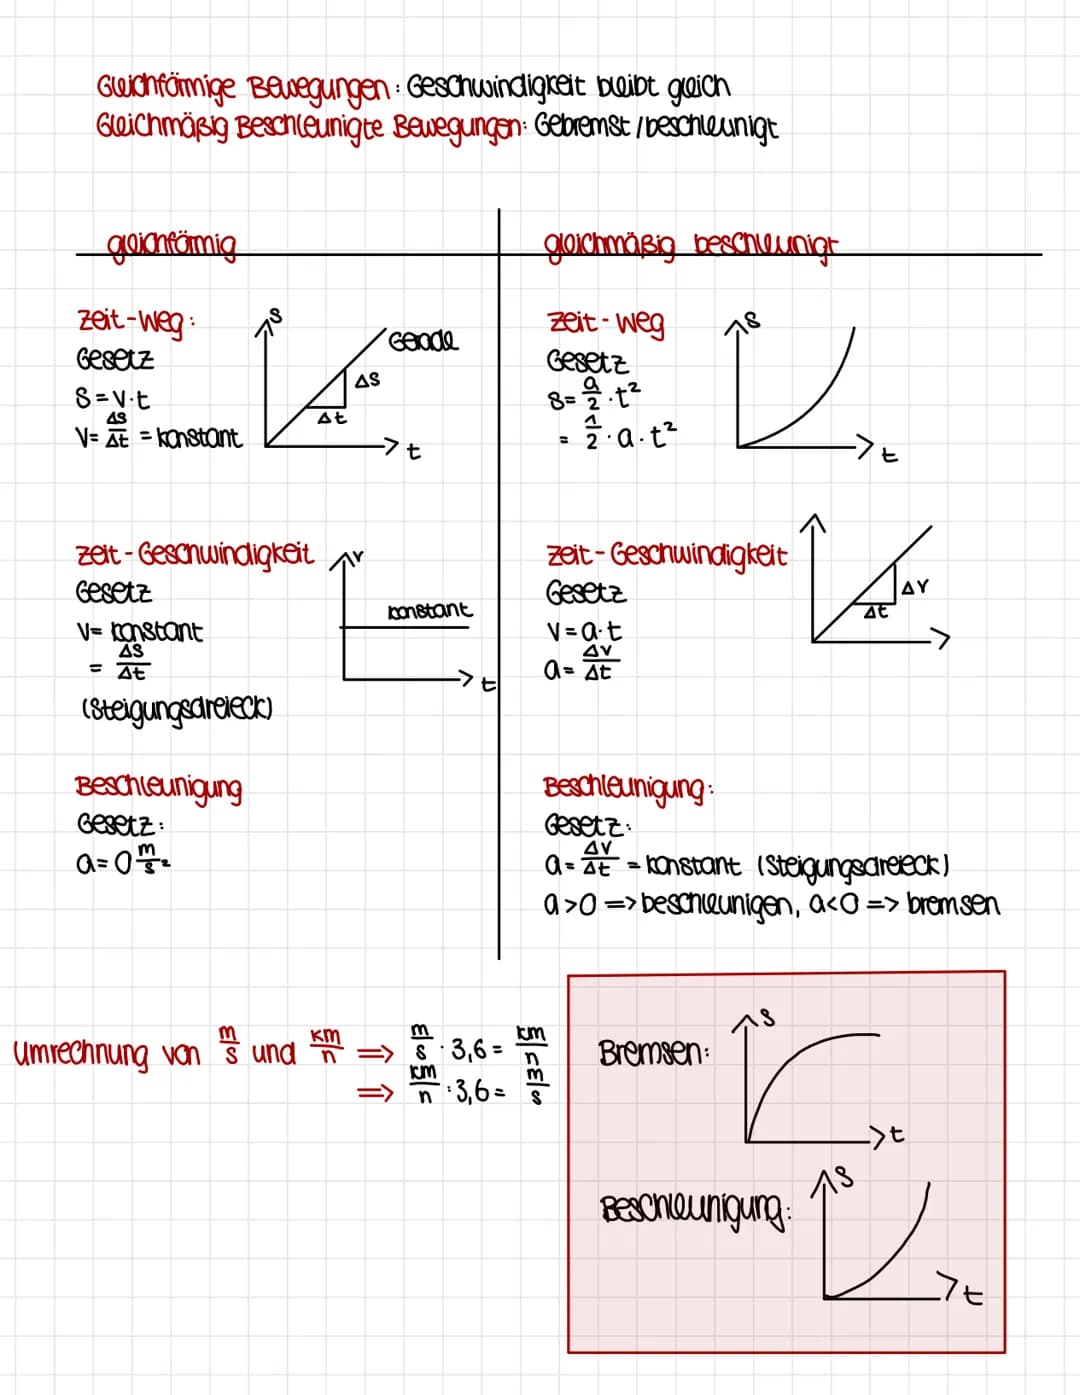 Gleichförmige Bewegungen: Geschwindigkeit bleibt gleich
Gleichmäßig Beschleunigte Bewegungen: Gebremst / beschleunigt
gleichförmig
zeit-weg:
Gesetz
s = v·t
v = Δs/Δt = konstant
s
Gerade
Δs
Δt
t
zeit-Geschwindigkeit
Gesetz
v = konstant
= Δs/Δt
(Steigungsdreieck)
v
konstant
t
Beschleunigung
Gesetz:
a = 0 m/s²
gleichmäßig beschleunigt
zeit-weg
Gesetz
s = a/2 · t²
= 1/2 · a · t²
s
t
zeit-Geschwindigkeit
Gesetz
v = a·t
a = Δv/Δt
Δv
Δt
Beschleunigung:
Gesetz:
a = Δv/Δt = konstant (Steigungsdreieck)
a>0 => beschleunigen, a<0 => bremsen
Umrechnung von m/s und km/h => m/s · 3,6 = km/h
=> km/h : 3,6 = m/s
Bremsen:
s
t
Beschleunigung:
s
t